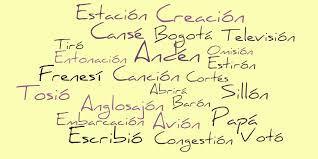 Estación Creación
Cansé Bogotá Televisión
Tiró Andén Omisión
Entonación Estirón
Frenesí Canción Cortés
Tosió Abrirá Sillón
Anglosajón Barón
Embarcación Avión Papá
Escribió Congestión Votó